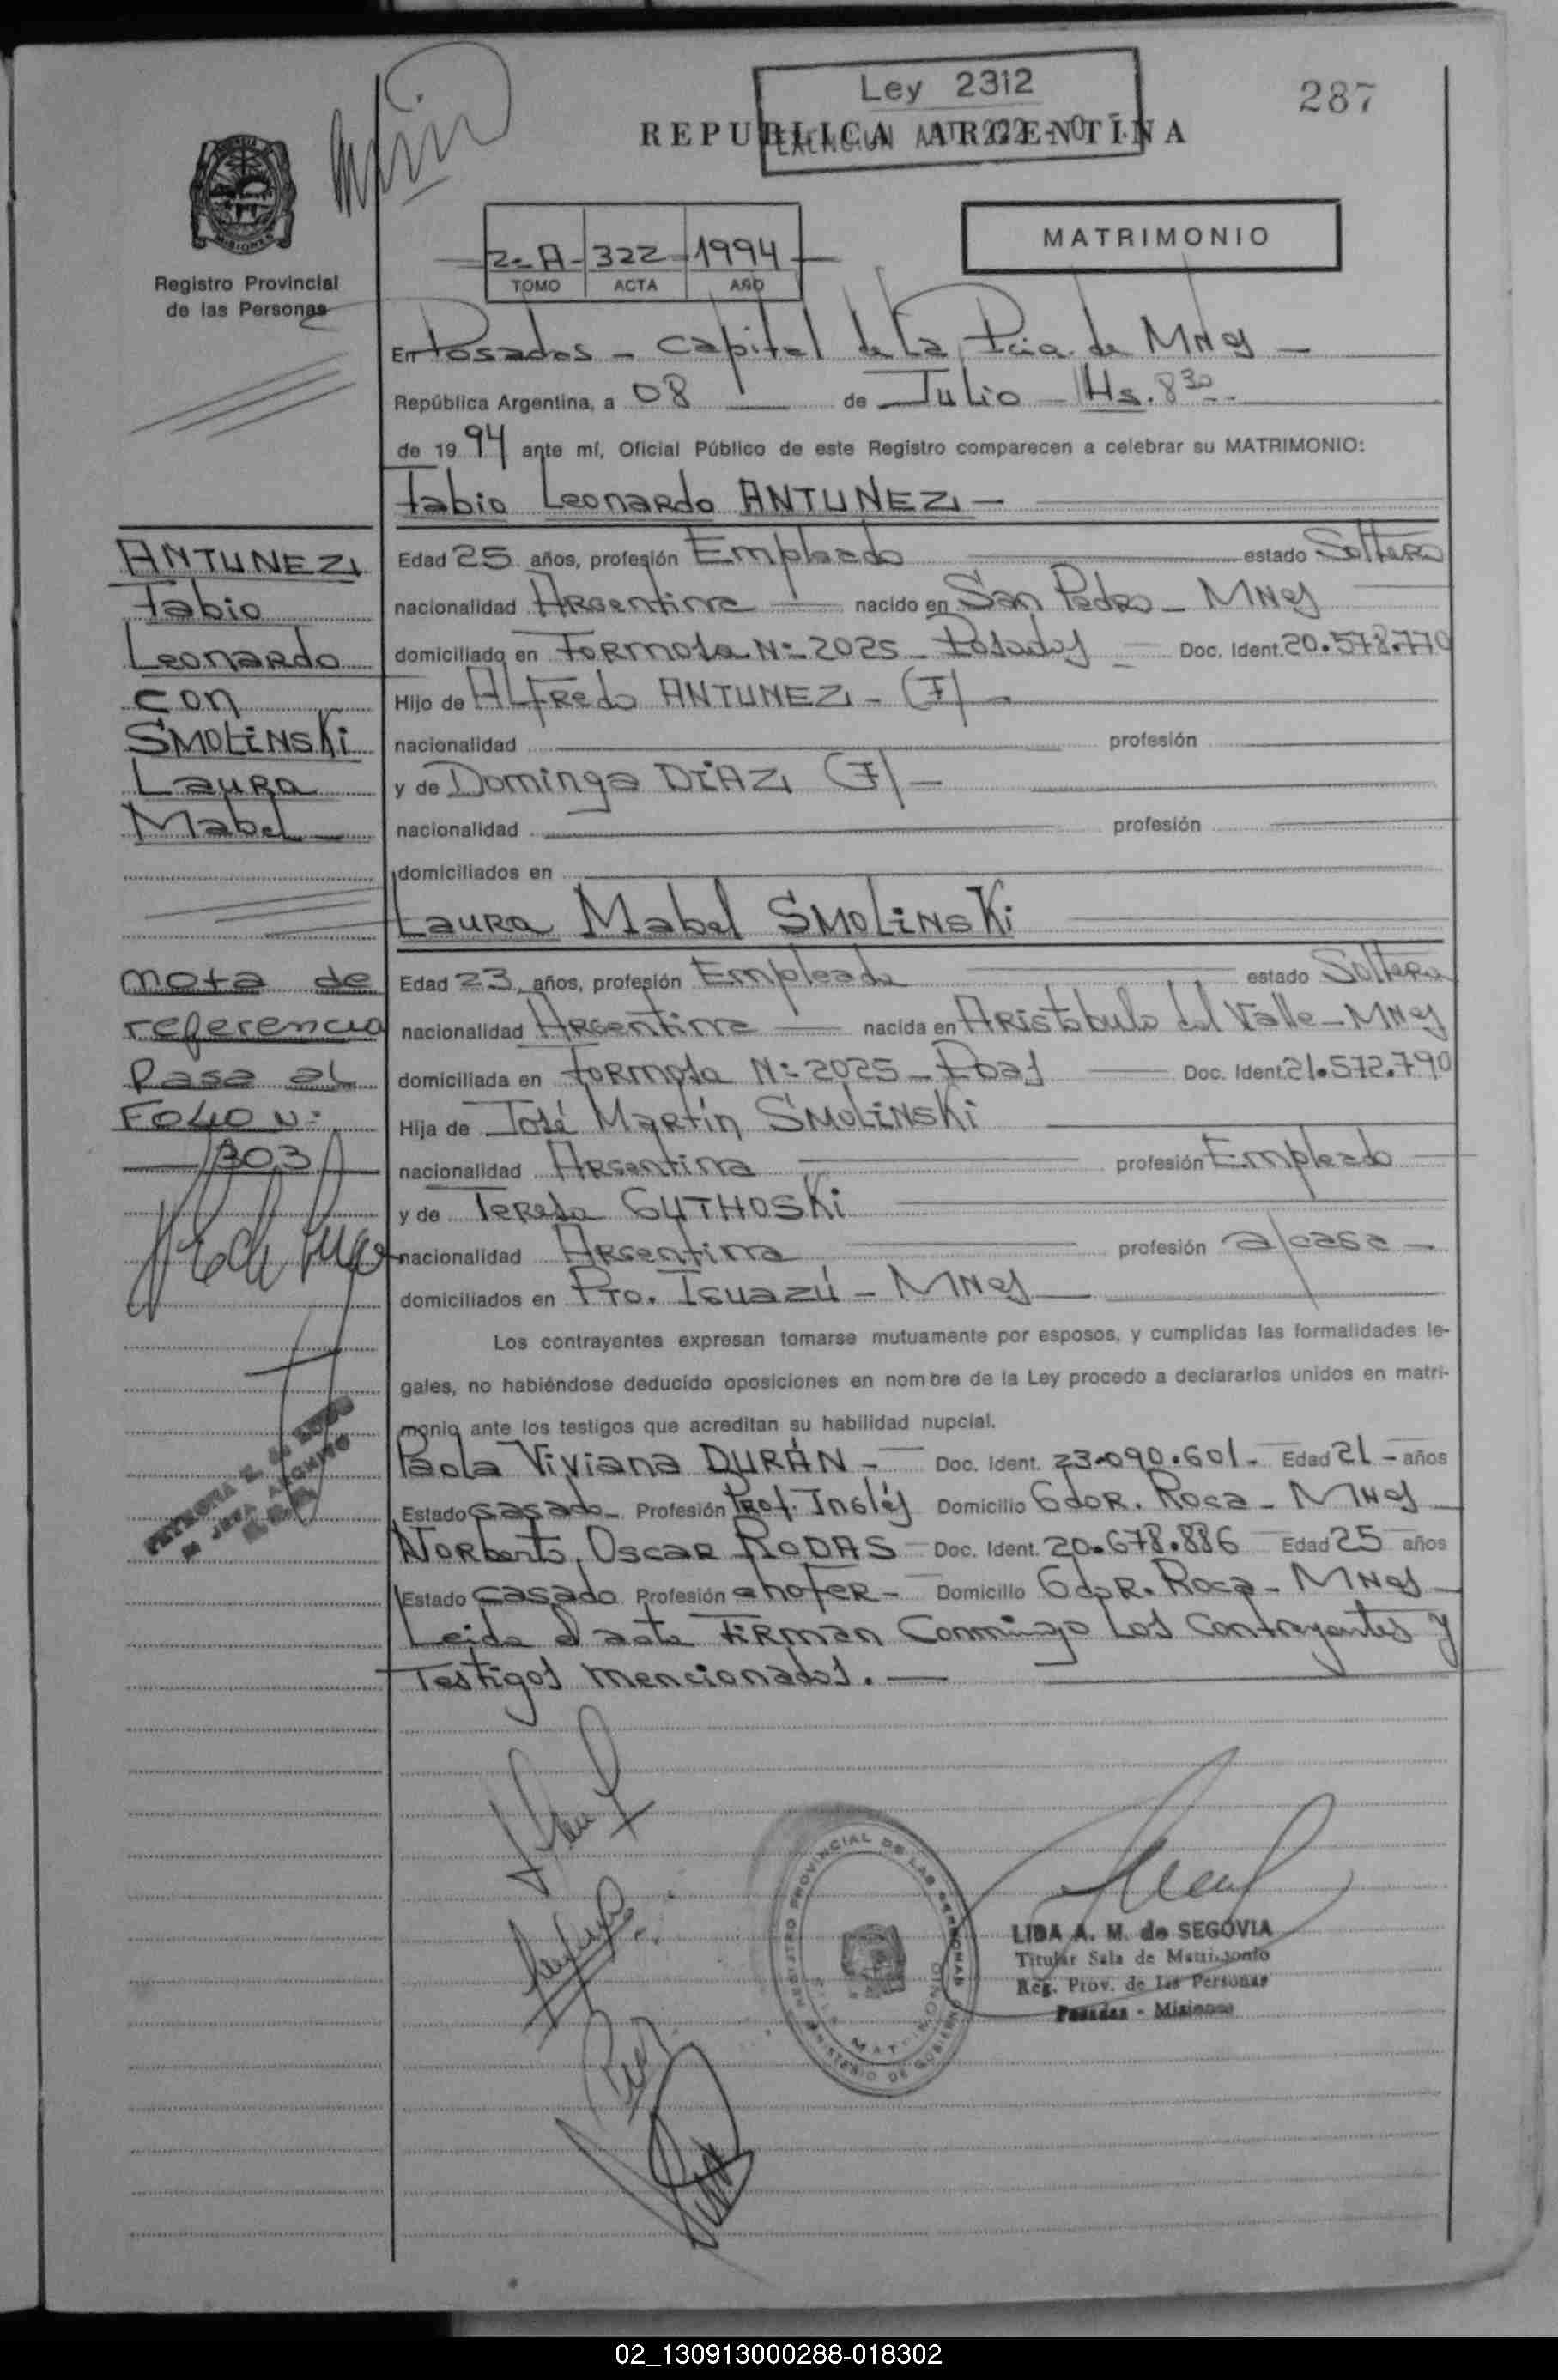 Ley 2312
287
REPUBLICA ARGENTINA
MISIONES
Registro Provincial
de las Personas
2-A- 322 1994
TOMO ACTA AÑO
MATRIMONIO
En Posadas - Capital de la Pcia. de Mnes -
República Argentina, a 08 de Julio - Hs. 8 30 -
de 19 94 ante mí, Oficial Público de este Registro comparecen a celebrar su MATRIMONIO:
Fabio Leonardo ANTUNEZ -
Edad 25 años, profesión Empleado estado Soltero
nacionalidad Argentina nacido en San Pedro - Mnes
domiciliado en Formosa Nº 2025 - Posadas - Doc. Ident. 20.578.770
Hijo de Alfredo ANTUNEZ - (F) -
nacionalidad profesión
y de Dominga DÍAZ (F) -
nacionalidad profesión
domiciliados en
Laura Mabel SMOLINSKI
Edad 23 años, profesión Empleada estado Soltera
nacionalidad Argentina nacida en Aristobulo del Valle - Mnes
domiciliada en Formosa Nº 2025 - Pdas Doc. Ident. 21.572.790
Hija de José Martín SMOLINSKI
nacionalidad Argentina profesión Empleado
y de Teresa GUTHOSKI
nacionalidad Argentina profesión a/casa -
domiciliados en Pto. Iguazú - Mnes
Los contrayentes expresan tomarse mutuamente por esposos, y cumplidas las formalidades le-
gales, no habiéndose deducido oposiciones en nombre de la Ley procedo a declararlos unidos en matri-
monio ante los testigos que acreditan su habilidad nupcial.
Paola Viviana DURÁN - Doc. Ident. 23.090.601 - Edad 21 - años
Estado casada - Profesión Prof. Inglés Domicilio Gdor. Roca - Mnes
Norberto Oscar RODAS - Doc. Ident. 20.678.886 Edad 25 años
Estado casado Profesión chofer - Domicilio Gdor. Roca - Mnes
Leida el acta Firman Conmigo los Contrayentes y
Testigos mencionados. -
ANTUNEZ
Fabio
Leonardo
con
SMOLINSKI
Laura
Mabel
nota de
referencia
Pasa al
FOLIO Nº
303
PETRONA E. de LUGO
REGISTRO PROVINCIAL DE LAS PERSONAS
MINISTERIO DE GOBIERNO
MATRIMONIO
LIDA A. M. de SEGOVIA
Titular Sala de Matrimonio
Reg. Prov. de las Personas
Posadas - Misiones
02_130913000288-018302